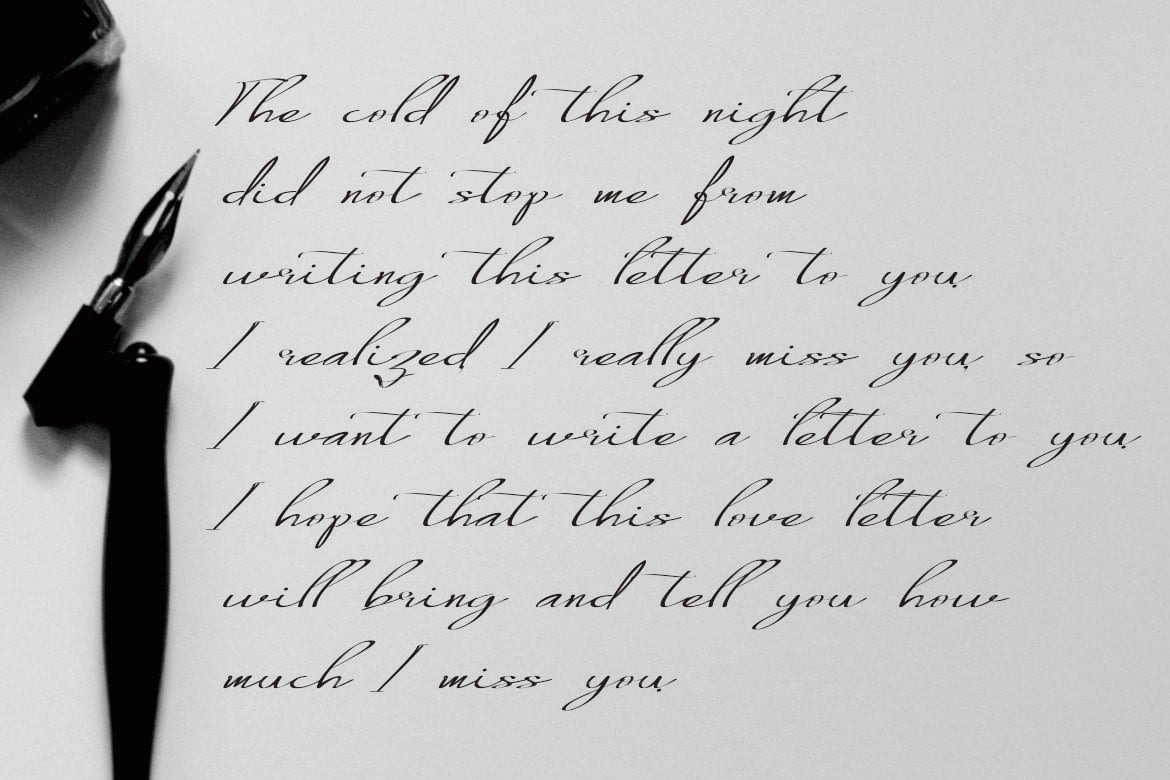 The cold of this night
did not stop me from
writing this letter to you.
I realized I really miss you, so
I want to write a letter to you.
I hope that this love letter
will bring and tell you how
much I miss you.